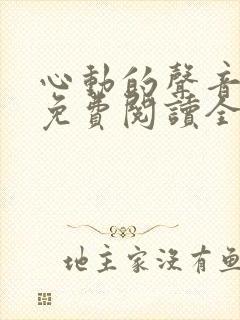 心動的聲音
免費閱讀全
地主家沒有魚